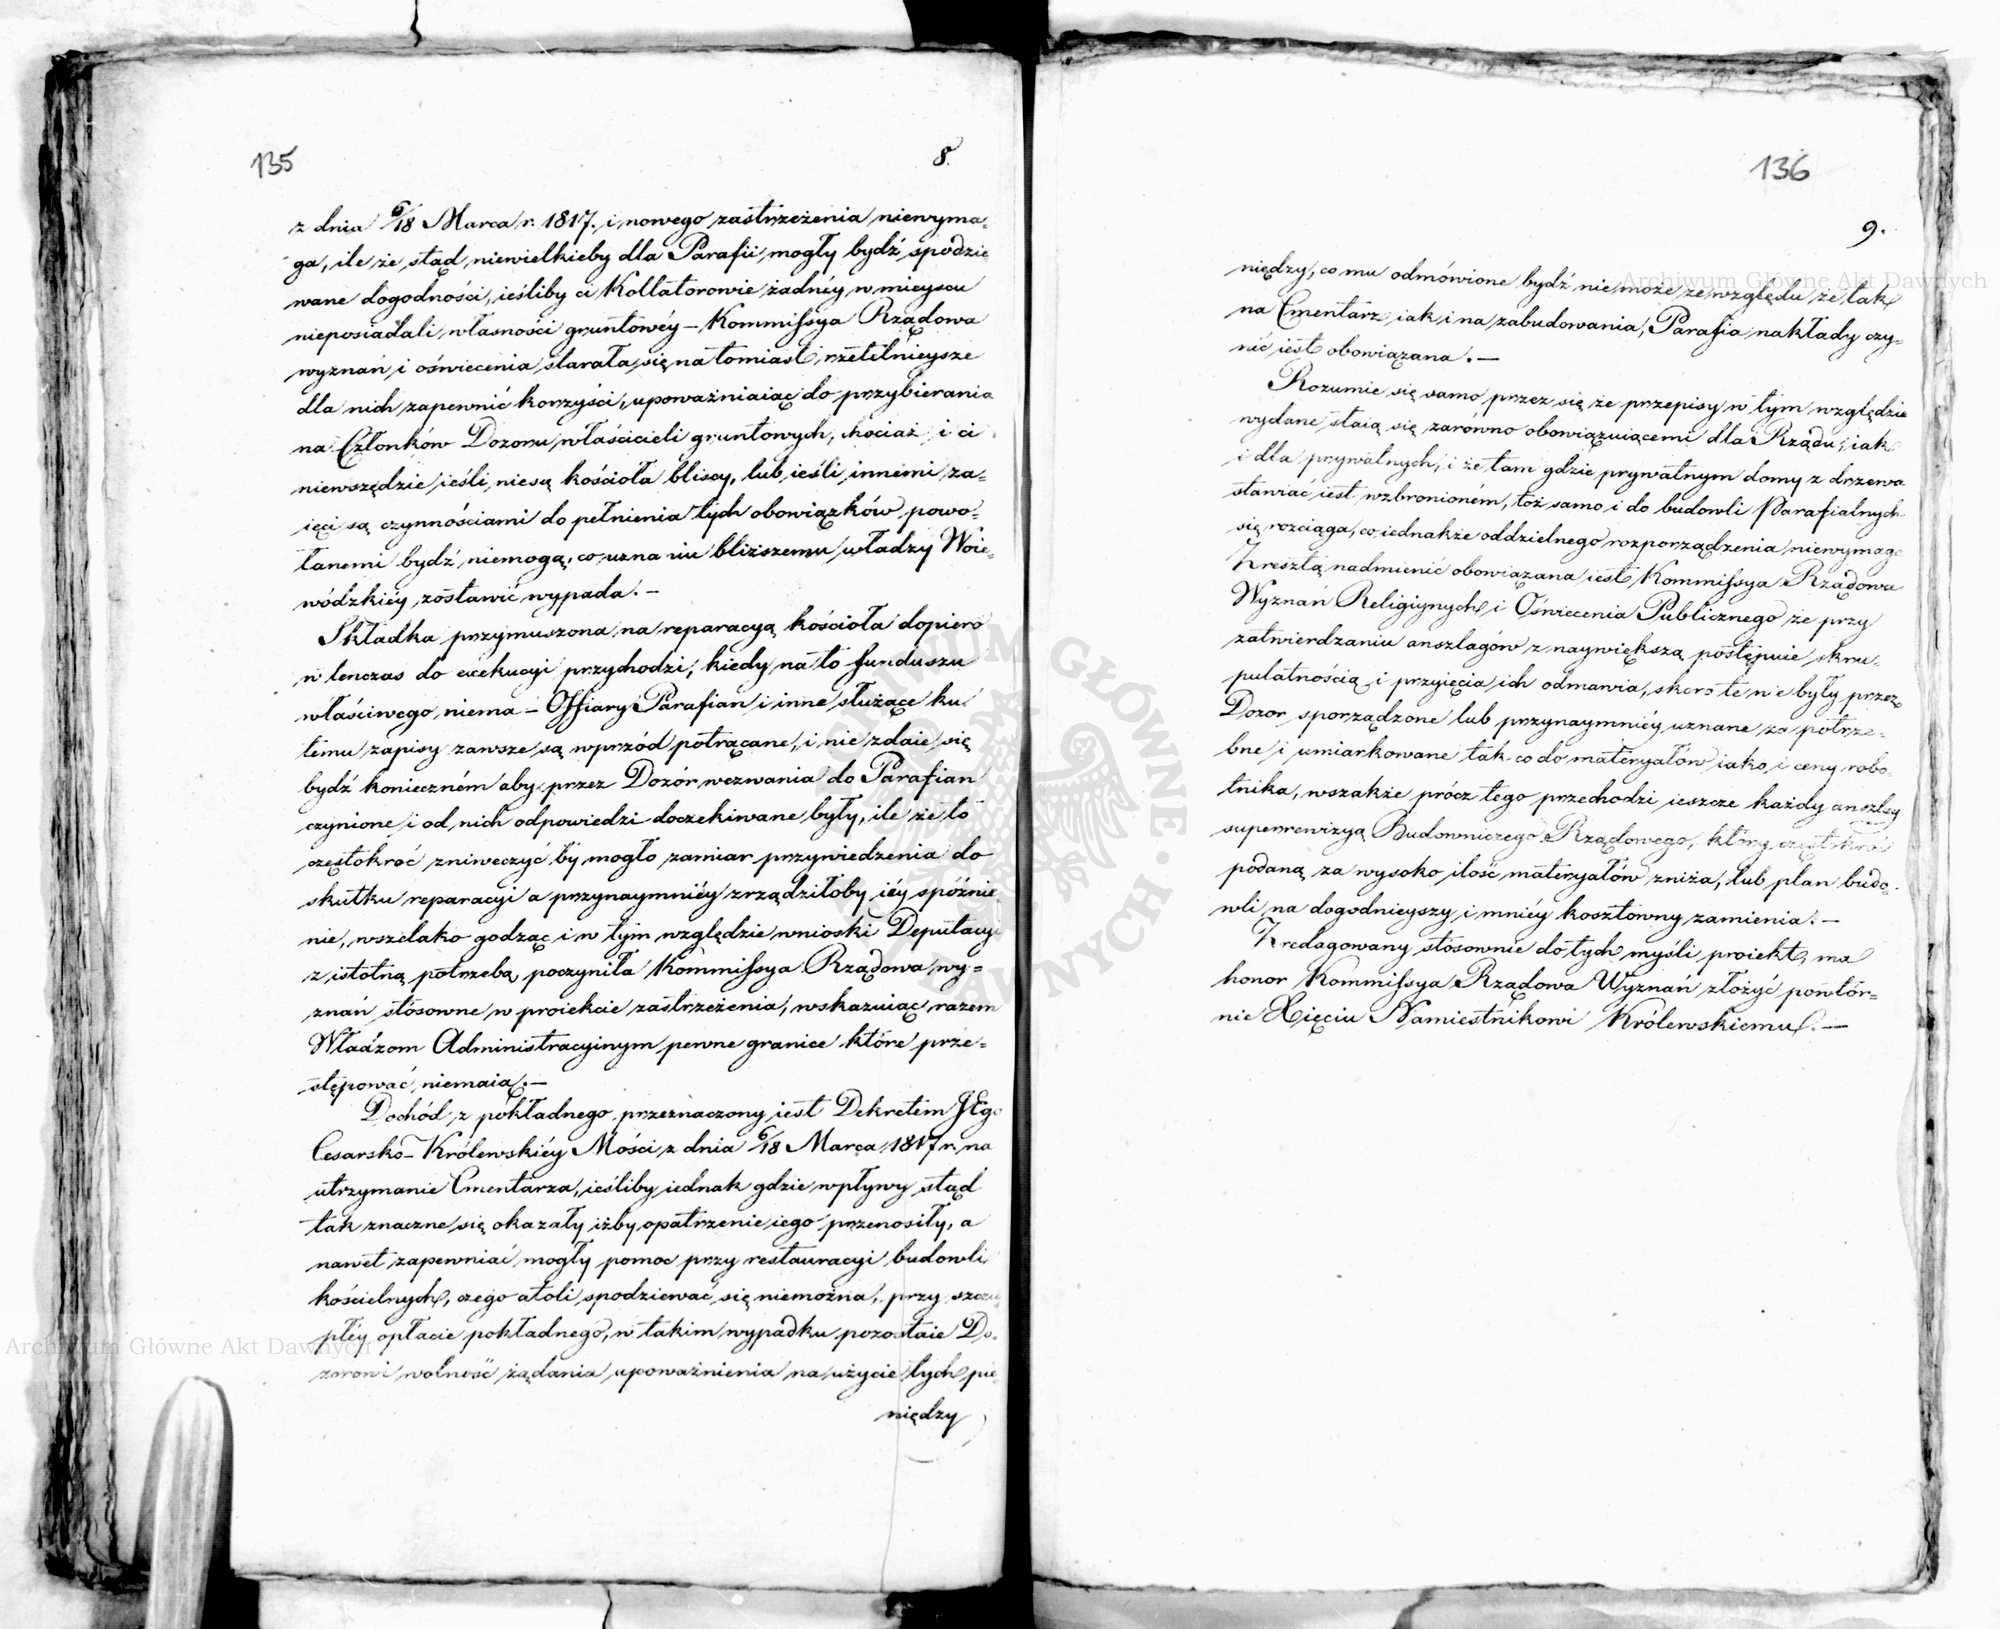 135
8.
z dnia 6/18 Marca r. 1817. i nowego zastrzeżenia niewyma-
ga, ile że stąd niewielkieby dla Parafii mogły bydź spodzie
wane dogodności, ieśliby ci Kollatorowie żadnéy w mieyscu
nieposiadali własności gruntowéy – Kommissya Rządowa
wyznań i oświecenia starała się natomiast rzetelnieysze
dla nich zapewnić korzyści, upoważniaiąc do przybierania
na Członków Dozoru właścicieli gruntowych, chociaż i ci
niewszędzie ieśli niesą kościoła bliscy, lub ieśli innemi za-
ięci są czynnościami do pełnienia tych obowiązków powo-
łanemi bydź niemogą, co uznaniu bliższemu władzy Woie-
wódzkiéy zostawić wypada. –
Składka przymuszona na reparacyą kościoła dopiero
w tenczas do exekucyi przychodzi, kiedy na to funduszu
właściwego niema – Offiary Parafian i inne służące ku
temu zapisy zawsze są wprzód potrącane, i nie zdaie się
bydź konieczném aby przez Dozór wezwania do Parafian
czynione i od nich odpowiedzi doczekiwane były, ile że to
częstokroć zniweczyć by mogło zamiar przywiedzenia do
skutku reparacyi a przynaymniéy zrządziłoby iéy spóźnie
nie, wszelako godząc i w tym względzie wnioski Deputacyi
z istotną potrzebą, poczyniła Kommissya Rządowa wy-
znań stosowne w proiekcie zastrzeżenia, wskazuiąc razem
Władzom Administracyinym pewne granice które prze-
stępować niemaią. –
Dochód z pokładnego przeznaczony iest Dekretem JEgo
Cesarsko-Królewskiéy Mości z dnia 6/18 Marca 1817 r. na
utrzymanie Cmentarza, ieśliby iednak gdzie wpływy stąd
tak znaczne się okazały iżby opatrzenie iego przenosiły, a
nawet zapewniać mogły pomoc przy restauracyi budowli
kościelnych, czego atoli spodziewać się niemożna, przy szczu
płéy opłacie pokładnego, w takim wypadku pozostaie Do-
zorowi wolność żądania upoważnienia na użycie tych pie-
niędzy
136
9.
niędzy, co mu odmówione bydź nie może ze względu że tak
na Cmentarz iak i na zabudowania, Parafia nakłady czy-
nić iest obowiązana. –
Rozumie się samo przez się że przepisy w tym względzie
wydane staią się zarówno obowiązuiącemi dla Rządu, iak
i dla prywatnych, i że tam gdzie prywatnym domy z drzewa
stawiać iest wzbronioném, toż samo i do budowli Parafialnych
się rozciąga, co iednakże oddzielnego rozporządzenia niewymaga
Zresztą nadmienić obowiązana iest Kommissya Rządowa
Wyznań Religiynych i Oświecenia Publicznego że przy
zatwierdzaniu anszlagów z naywiększą postępuie skru-
pulatnością i przyięcia ich odmawia, skoro te nie były przez
Dozor sporządzone lub przynaymniéy uznane za potrze-
bne i umiarkowane tak co do materyałów iako i ceny robo-
tnika, wszakże prócz tego przechodzi ieszcze każdy anszlag
superrewizyą Budowniczego Rządowego, który częstokroć
podaną za wysoko ilość materyałów zniża, lub plan budo-
wli na dogodnieyszy i mniéy kosztowny zamienia. –
Zredagowany stosownie do tych myśli proiekt, ma
honor Kommissya Rządowa Wyznań złożyć powtór-
nie Xięciu Namiestnikowi Królewskiemu. –
Archiwum Główne Akt Dawnych
Archiwum Główne Akt Dawnych
ARCHIWUM GŁÓWNE AKT DAWNYCH